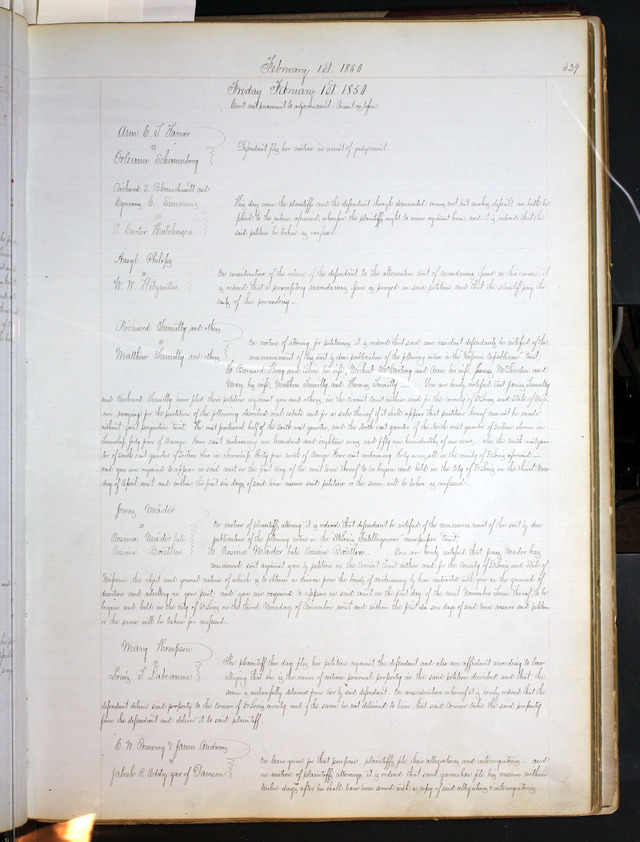 February 1st. 1850
329
Friday February 1st 1850
Court met pursuant to adjournment. Present as before
Ann E. T. Farrar
vs
Defendant files her motion in arrest of judgment.
Richard S. Blennerhassett and
vs
E. Carter Hutchinson
This day came the plaintiffs and the defendant though demanded comes not but makes default
and it is ordered that the
said petition be taken as confessed.
Ansyl Philips
vs
W. W.
On consideration of the return of the defendant to the alternative writ of mandamus issued in this cause it
is ordered that a peremptory mandamus issue as prayed in said petition, and that the plaintiff pay the
costs of this proceeding.
Richard Tumilty and others
vs
Matthew Tumilty and others
On motion of attorney for petitioners, it is ordered that said non resident defendants be notified of the
commencement of this suit by due publication of the following notice in the "Missouri Republican" to wit:
To Bernard King and Alice his wife, Michael McCartney and Anne his wife, James and
Mary his wife, Matthew Tumilty and Thomas Tumilty. You are hereby notified that James Tumilty
and Richard Tumilty have filed their petition against you and others, in the Circuit Court within and for the County of St Louis and State of Miss-
ouri, praying for the partition of the following described real estate and for a sale thereof if it shall appear that partition thereof can not be made
without great prejudice to wit. The west fractional half of the south west quarter, and the south east quarter of the north west quarter of section eleven in
Township forty five of Range four east containing one hundred and eighteen acres and fifty one hundredths of an acre, also the south west quar-
ter of south east quarter of Section in Township forty five north of Range four east containing forty acres, all in the county of St Louis aforesaid —
and you are required to appear in said court on the first day of the next term thereof to be begun and held in the City of St Louis on the third Mon-
day of April next and within the first six days of said term answer said petition or the same will be taken as confessed.
Jonas Mador
vs
Rosina Mador late
Rosina Boisllon
On motion of plaintiffs attorney, it is ordered that defendant be notified of the commencement of this suit by due
publication of the following notice in the newspaper to wit:
To Rosina Mador late Rosina Boisllon. You are hereby notified that Jonas Mador has
commenced suit against you by petition in the Circuit Court within and for the County of St Louis and State of
Missouri the object and general nature of which is to obtain a divorce from the bonds of matrimony by him contracted with you on the grounds of
desertion and adultery on your part; and you are required to appear in said court on the first day of the next November Term thereof to be
begun and held in the city of St Louis on the third Monday of November next and within the first six days of said term answer said petition
or the same will be taken for confessed.
Mary Thompson
vs
Louis T. Labeaume
The plaintiff this day files her petition against the defendant and also an affidavit according to law
alleging that she is the owner of certain personal property in the said petition described and that the
same is unlawfully detained from her by said defendant. On consideration whereof it is hereby ordered that the
defendant deliver said property to the Coroner of St Louis county and if the same be not delivered to him that said Coroner take the said property
from the defendant and deliver it to said plaintiff.
C. W. Pomeroy & James Andrews
vs
On leave given for that purpose, plaintiffs file their allegations and interrogatories — and
on motion of plaintiffs attorneys it is ordered that said garnishee file his answer within
twelve days after he shall have been served with a copy of said allegations & interrogatories.